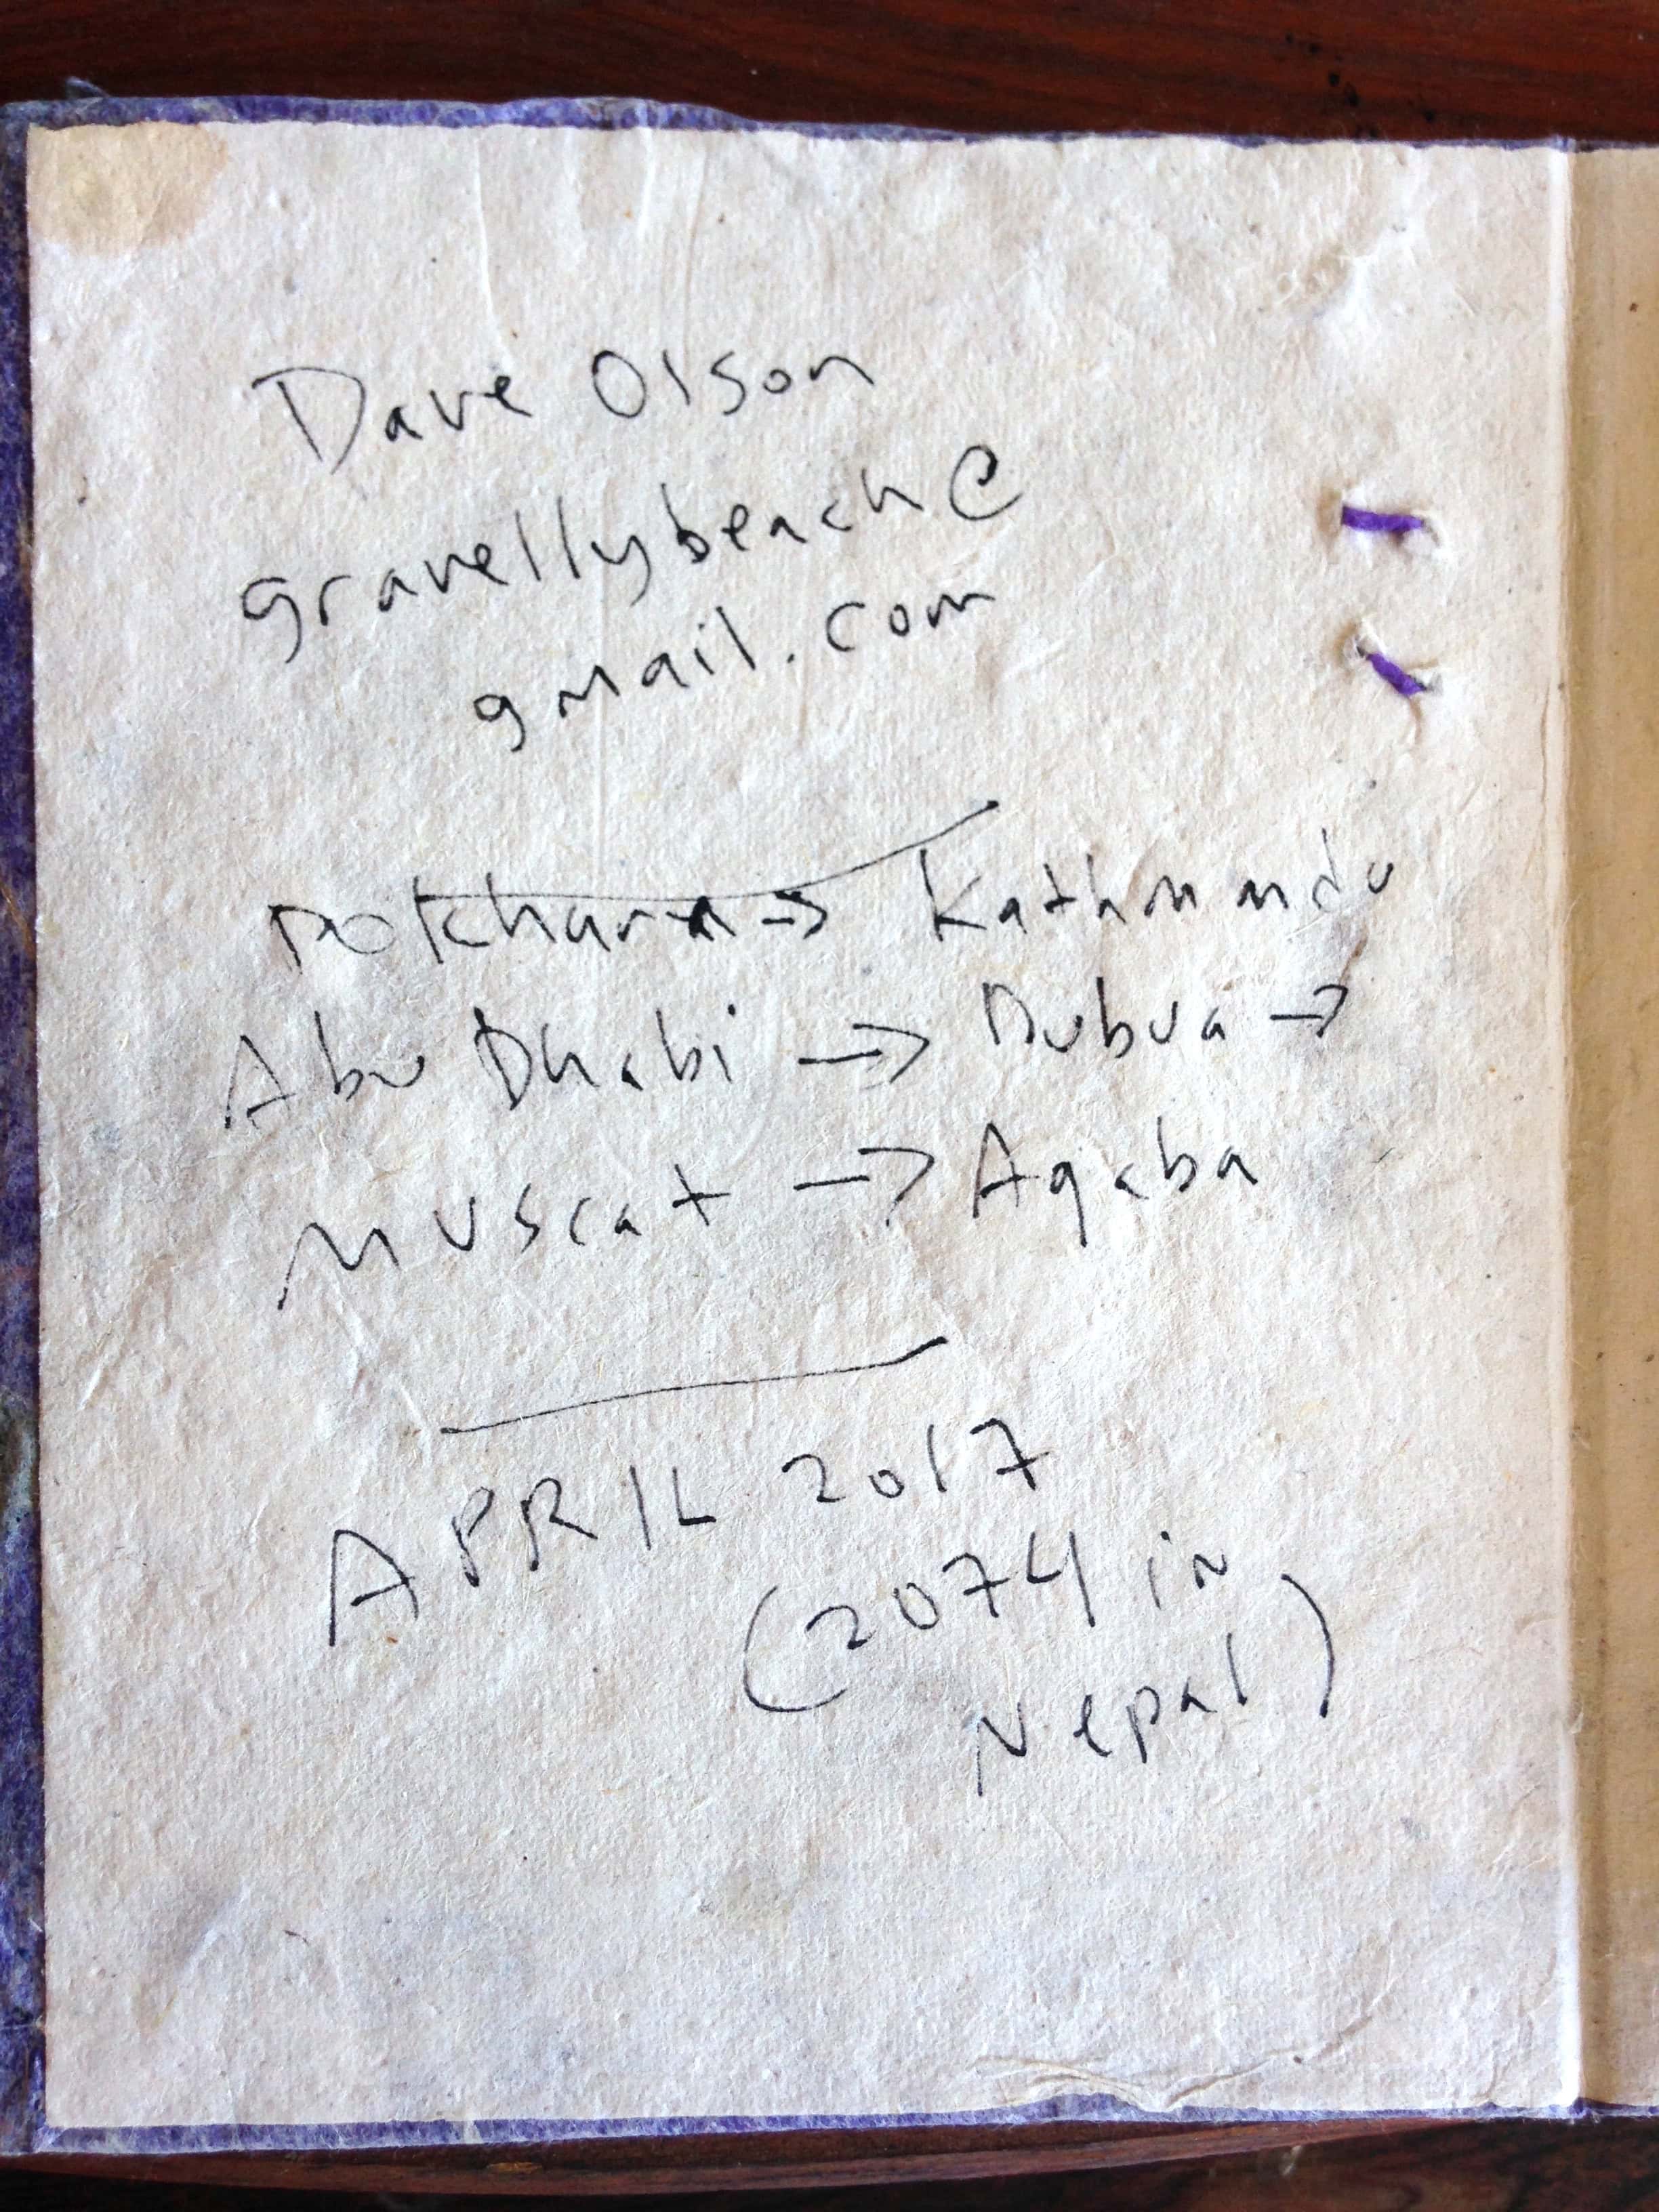 Dave Olson
gravellybeach@
gmail.com
Pokhara → Kathmandu
Abu Dhabi → Dubua →
Muscat → Aqaba
APRIL 2017
(2074 in
Nepal)